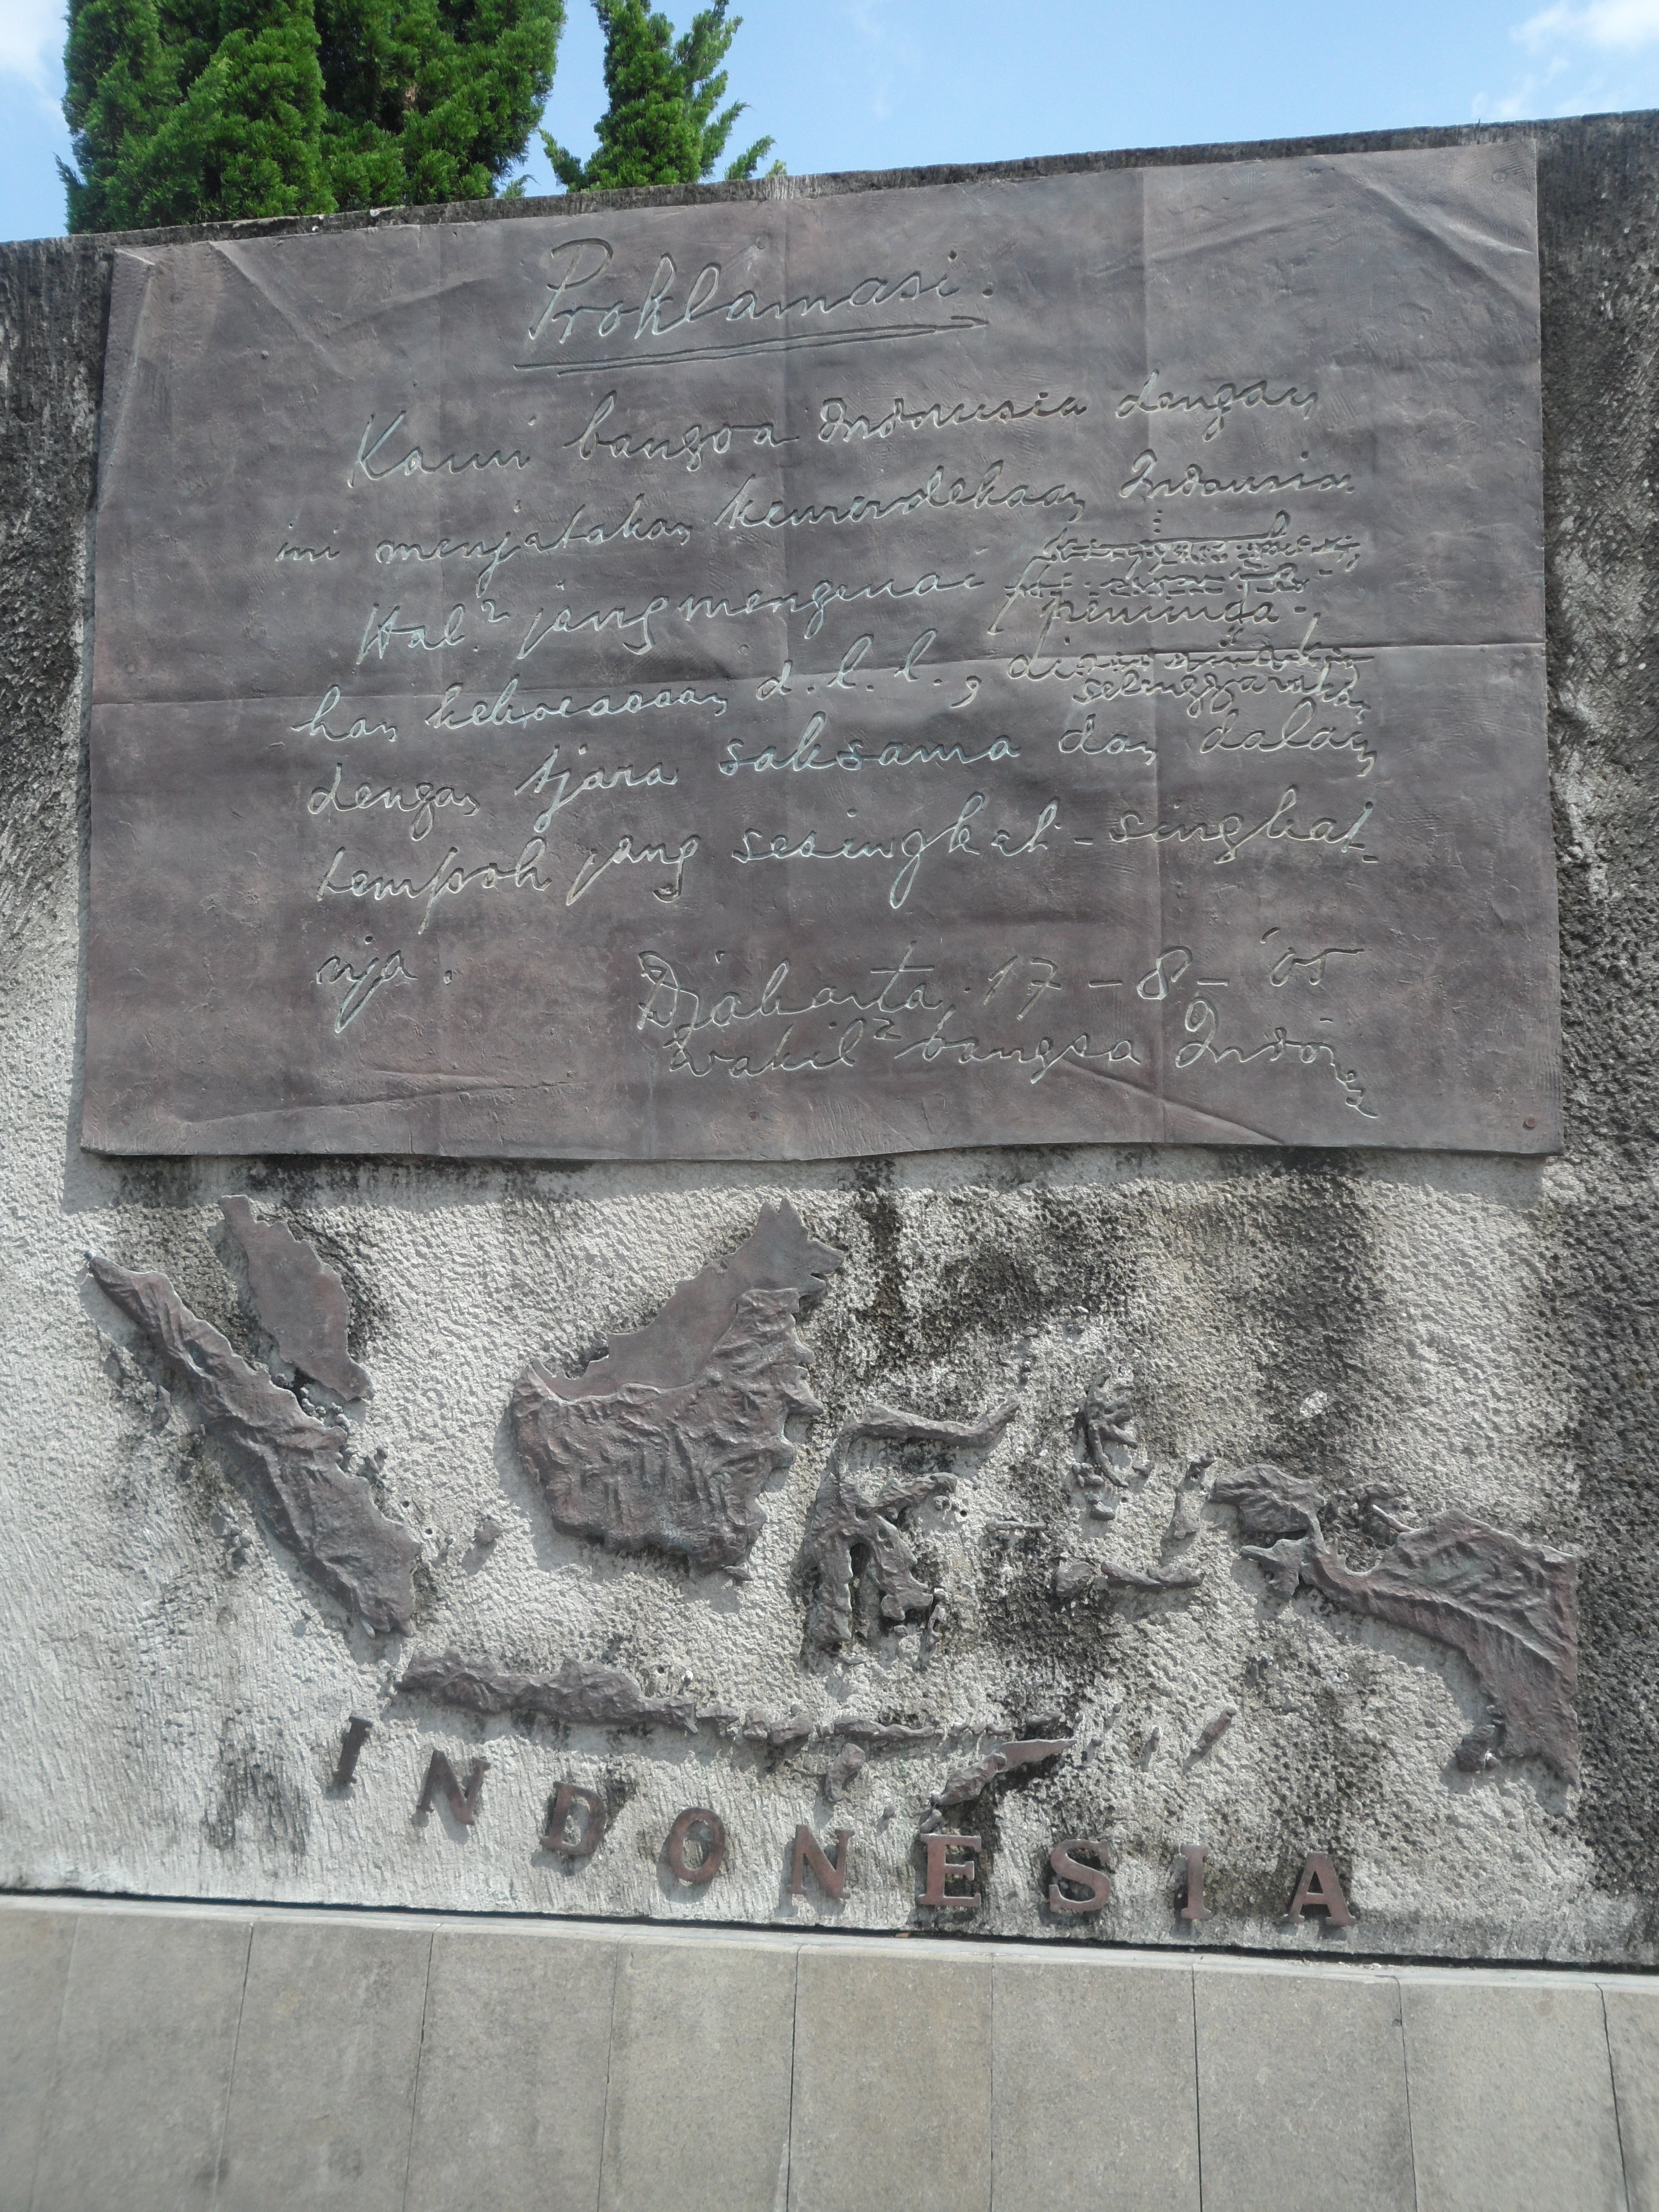 Proklamasi.
Kami bangsa Indonesia dengan
ini menjatakan kemerdekaan Indonesia.
Hal² jang mengenai
peminda-
han kekoeasaan d.l.l.,
diselenggarakan
dengan tjara saksama dan dalam
tempoh jang sesingkat-singkat-
nja.
Djakarta, 17-8-'05
Wakil² bangsa Indones
INDONESIA